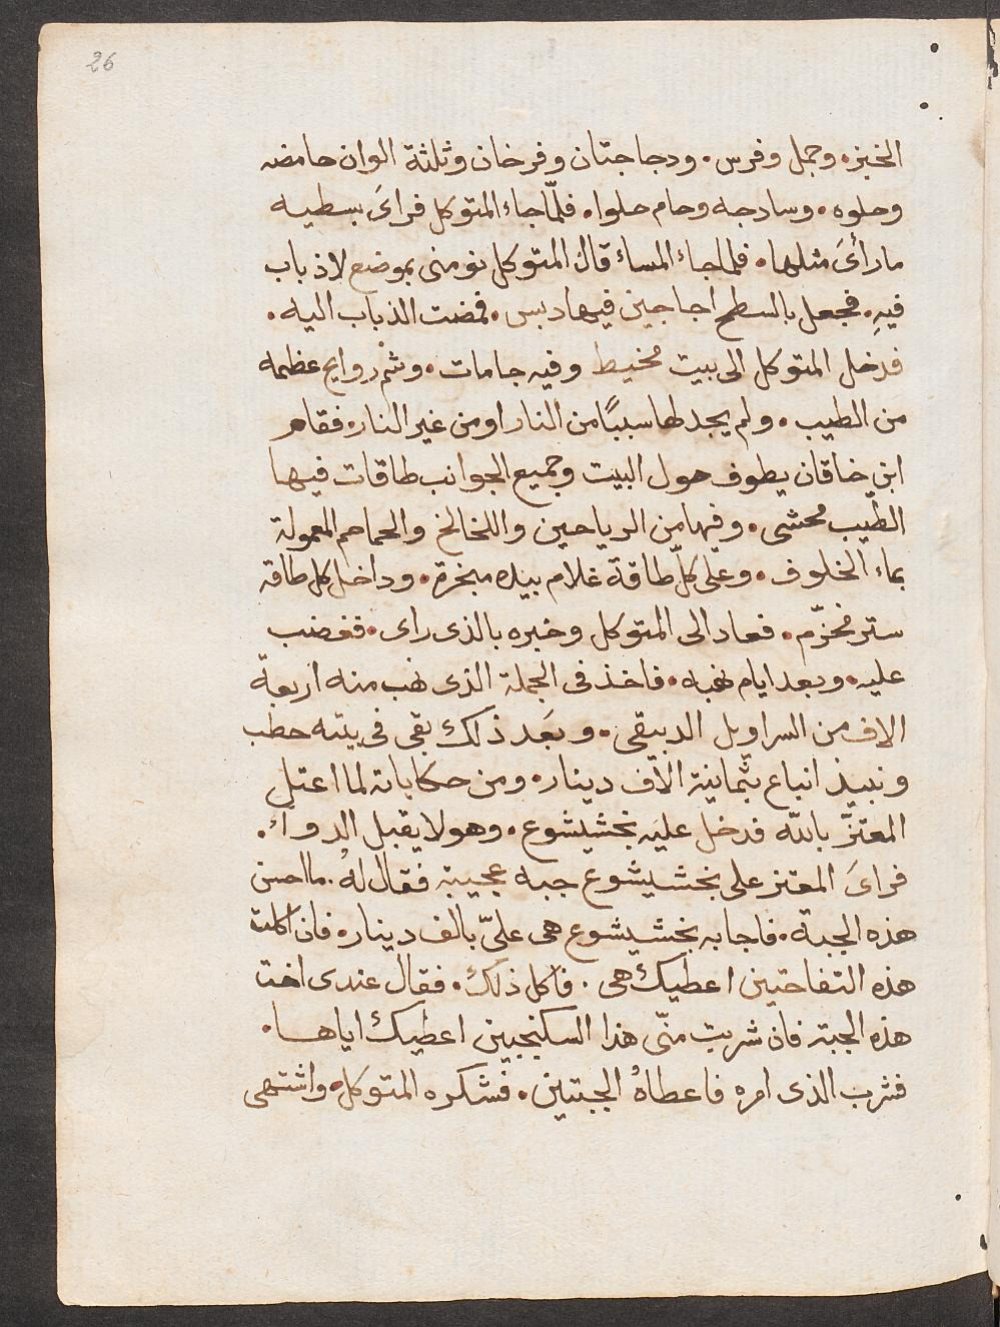 26
الخبزه وجمل وفرس . ودجاجتان وفرخان وثلثة الوان حامضه
وحلوه . وسادجه وحام حلوا . فلمّا جاء المتوكل فراىَ بسطيه
ماراىَ مثلها . فلما جاء المساء قال المتوكل نومنى بموضع لا ذباب
فيهِ . فجعل بالسطح اجاجين فيها دبس . فمضت الذباب اليه .
فدخل المتوكل الى بيت مخيط وفيه جامات . وشمْ روايح عظمه
من الطيب . ولم يجد لها سببًا من النار او من غير النار . فقام
ابن خاقان يطوف حول البيت وجميع الجوانب طاقات فيها
الطّيب محشى . وفيها من الرياحين واللخالخ والحماحم المعمولة
بماء الخلوف . وعلى كلّ طاقة غلام بيده مبخرة . وداخل كل طاقه
ستر مخزّم . فعاد الى المتوكل وخبره بالذى راى . فغضب
عليه . وبعد ايام نهبه . فاخذ فى الجملة الذى نهب منه اربعة
الاف من السراويل الدبيقى . وبعَد ذلك بقى فى بيته حطب
ونبيذ انباع بثمانية الآف دينار . ومن حكاياته لما اعتل
المعتزّ بالله فدخل عليَه بخشيشوع . وهو لا يقبل الدوآء .
فراىَ المعتز على بخشيشوع جبه عجيبة فقال لهُ . ما احسن
هذه الجبة . فاجابه بخشيشوع هى علىّ بالف دينار . فان اكلت
هذه التفاحتين اعطيك هى . فاكل ذلك . فقال عندى اخت
هذه الجبة فان شربت منّى هذا السكنجبين اعطيك اياها .
فشرب الذى امره فاعطاهُ الجبتين . فشكره المتوكل . واشتهى